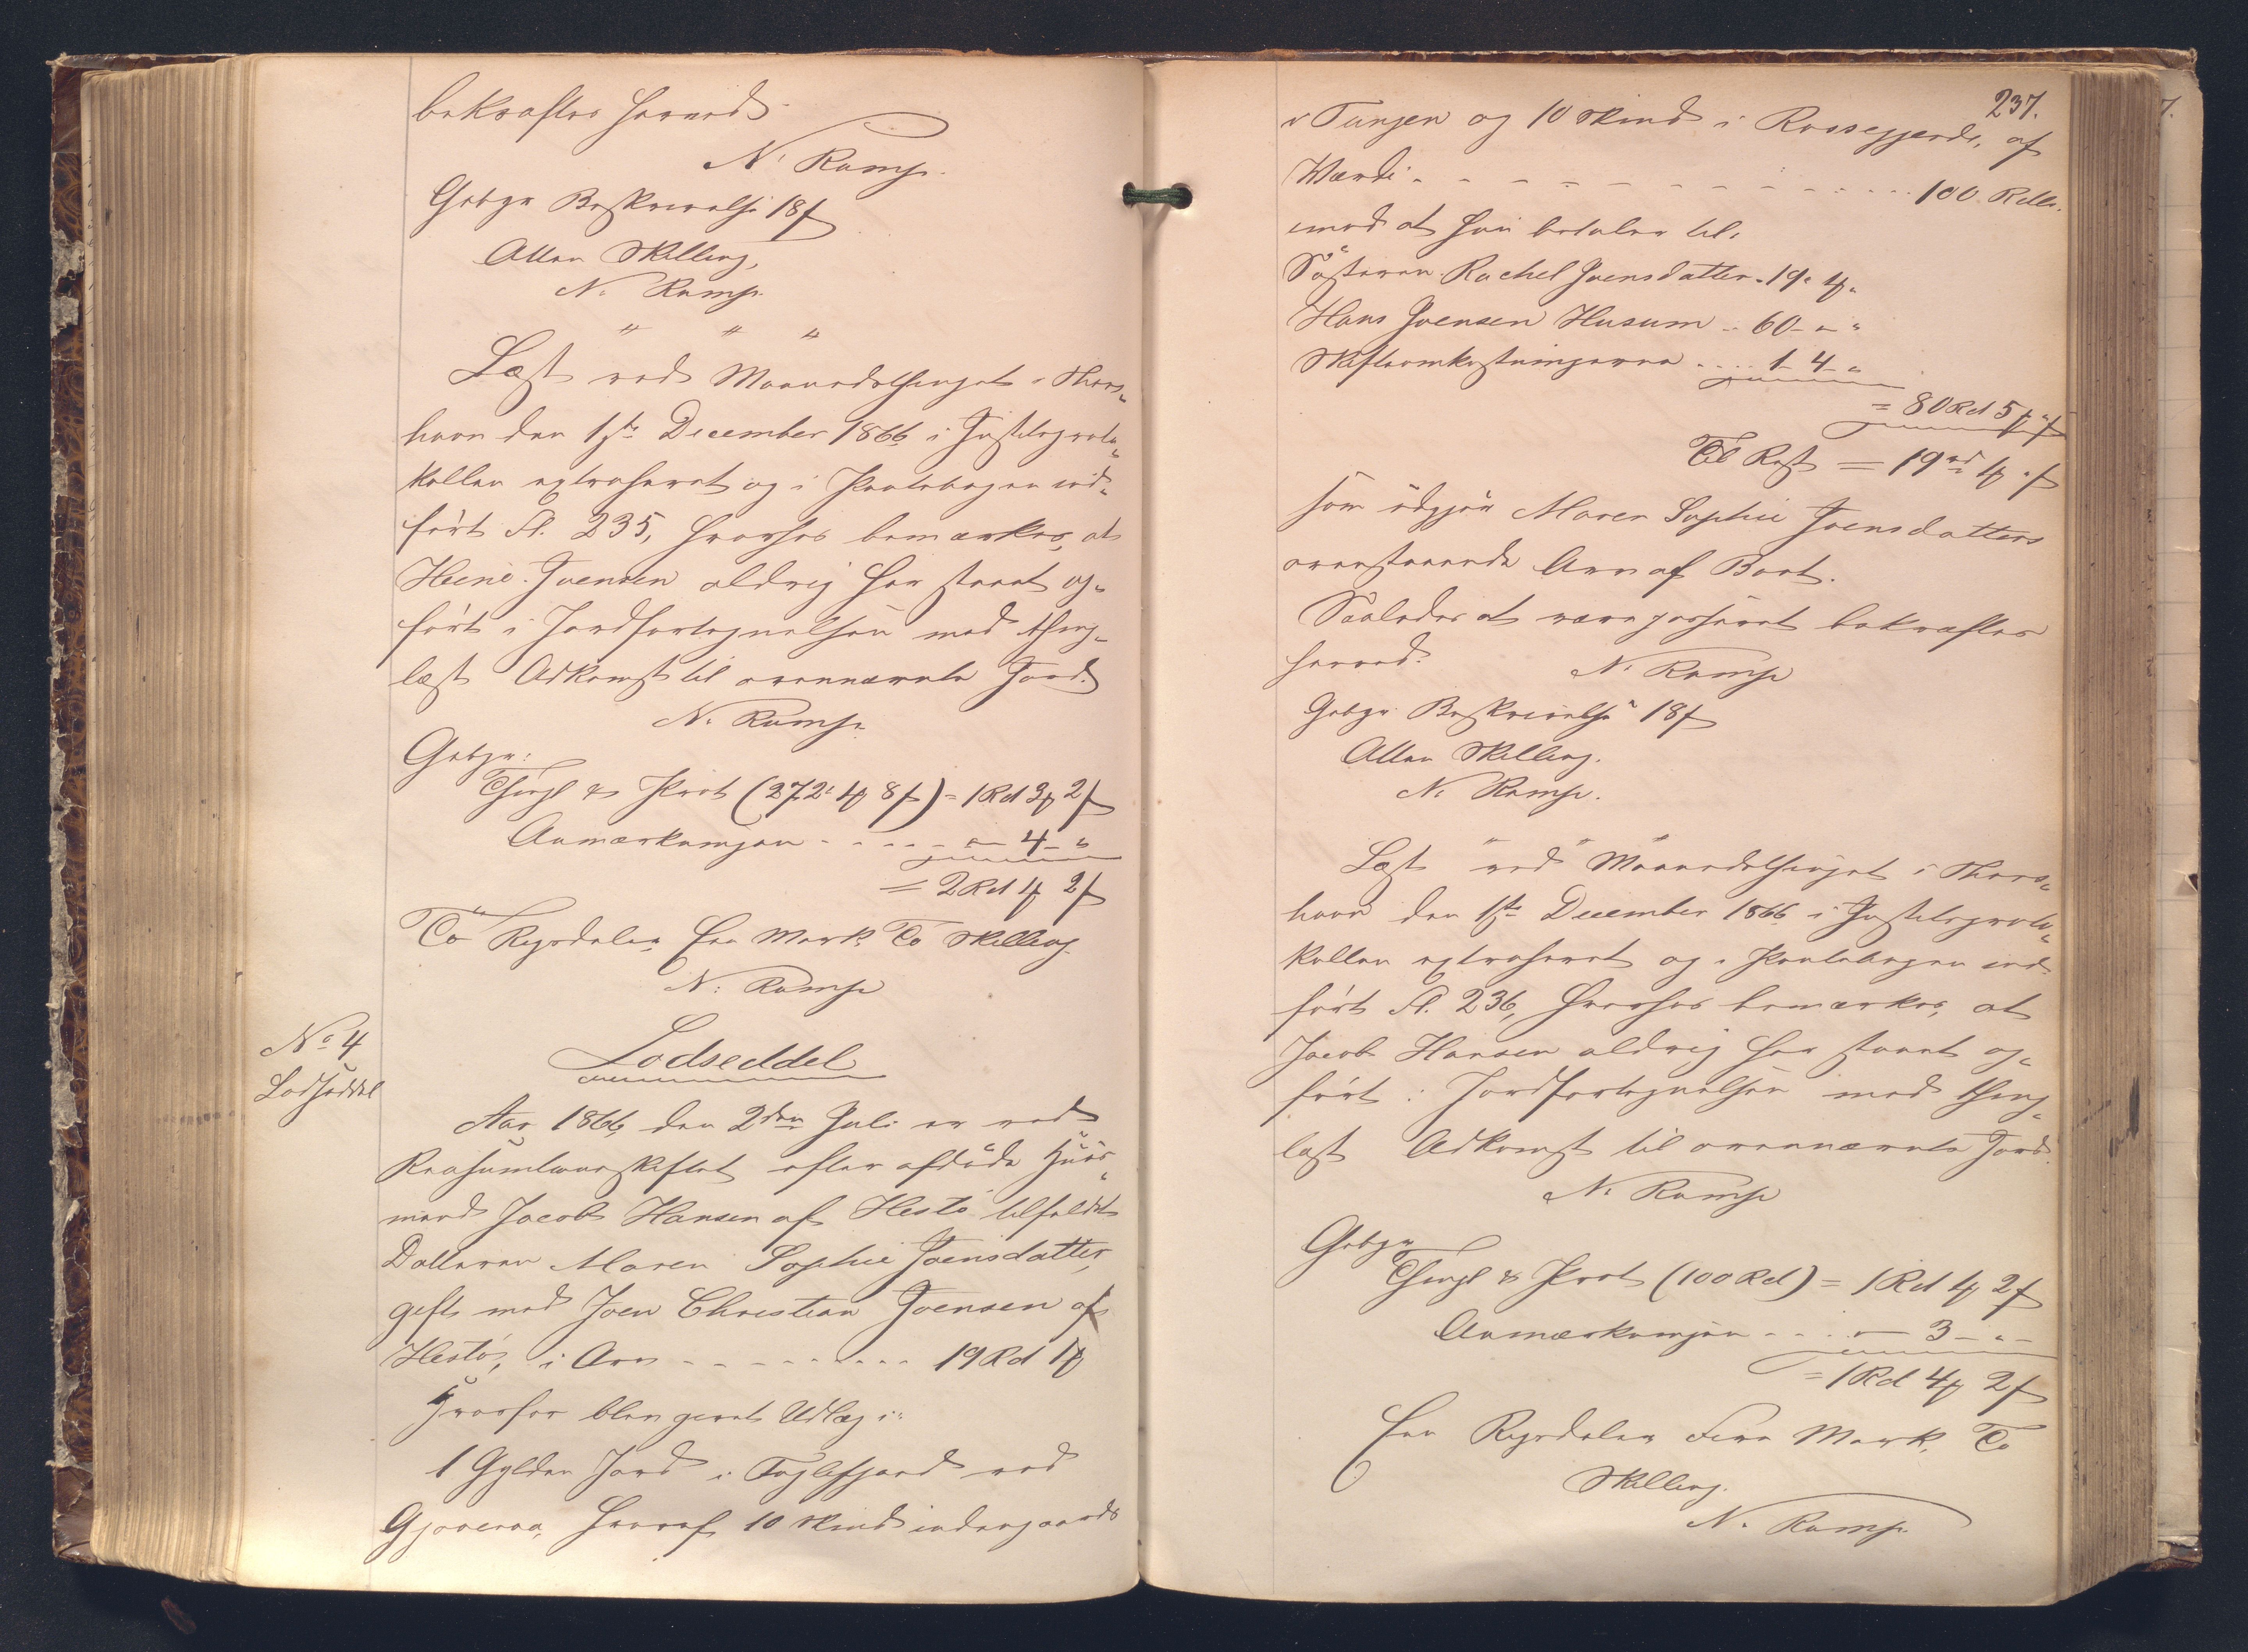 bekræftes herved
N. Rump.
Gebyr Beskrivelse 18 s
Atten Skilling,
N. Rump.
" " "
Læst ved Maanedsthinget i Thors„
havn den 1ste December 1866 i Justitsproto„
kollen extraheret og i Pantebogen ind„
ført Fl. 235, hvorhos bemærkes, at
Heine Joensen aldrig har staaet op„
ført i Jordfortegnelsen med thing„
læst Adkomst til ovennævnte Jord.
N. Rump.
Gebyr:
Thingl & Prot (272: 4 8 s) = 1 Rd 3 2 s
Anmærkningen - - - - - 4 - "
= 2 Rd 1 2 s
To Rigsdaler Een Mark To Skilling.
N: Rump
No 4
Lodseddel
Lodseddel
Aar 1866, den 2den Juli er ved
Reassumtionsskiftet efter afdøde Huus„
mand Jacob Hansen af Hestø tilfaldt
Datteren Maren Sophie Joensdatter,
gift med Joen Christian Joensen af
Hestø, i Arv - - - - - - - - - 19 Rd 1
Hvorfor blev gjort Udlæg i:
1 Gylden Jord i Fuglefjord ved
Gjoveraa, hvoraf 10 Skind indengaards
237.
v Tungen og 10 Skind i Rossegjerde, af
Værdi - - - - - - - - - - - - 100 Rdlr.
imod at hun betaler til:
Søsteren Rachel Joensdatter - 19 " 4 "
Hans Joensen Husum - 60 - " - "
Skifteomkostningerne - - - 1 - 4 - "
= 80 Rd 5 " s
Til Rest = 19 rd 1 " s
som udgjør Maren Sophie Joensdatters
ovenstaaende Arv af Boet.
Saaledes at være passeret bekræftes
herved.
N. Rump
Gebyr Beskrivelse 18 s
Atten Skilling.
N. Rump.
" " "
Læst ved Maanedsthinget i Thors„
havn den 1ste December 1866 i Justitsproto„
kollen extraheret og i Pantebogen ind
ført Fl. 236, hvorhos bemærkes, at
Jacob Hansen aldrig har staaet op„
ført i Jordfortegnelsen med thing„
læst Adkomst til ovennævnte Jord.
N. Rump
Gebyr
Thingl & Prot (100 Rd) = 1 Rd 1 2 s
Anmærkningen - - - - 3 - " -
= 1 Rd 4 2 s
Een Rigsdaler Fire Mark, To
Skilling.
N. Rump.